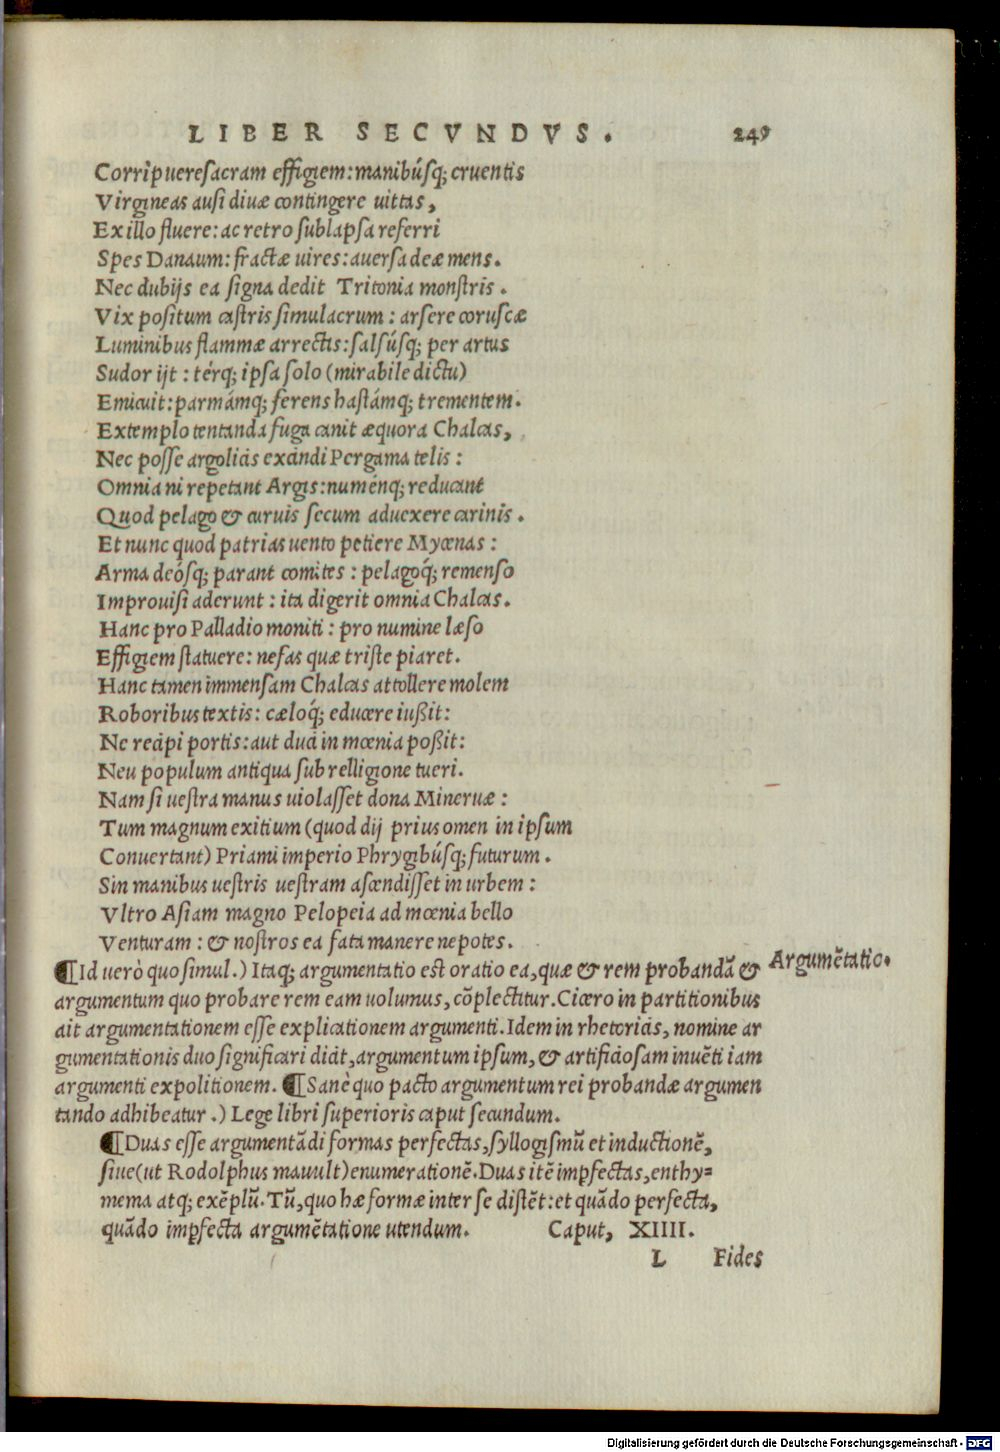 LIBER SECVNDVS. 249
Corrìpuere sacram effigiem: manibúsq; cruentis
Virgineas ausi diuæ contingere uittas,
Ex illo fluere: ac retro sublapsa referri
Spes Danaum: fractæ uires: auersa deæ mens.
Nec dubijs ea signa dedit Tritonia monstris.
Vix positum castris simulacrum: arsere coruscæ
Luminibus flammæ arrectis: salsúsq; per artus
Sudor ijt: térq; ipsa solo (mirabile dictu)
Emicuit: parmámq; ferens hastámq; trementem.
Extemplo tentanda fuga canit æquora Chalcas,
Nec posse argolicis excindi Pergama telis:
Omnia ni repetant Argis: numénq; reducant
Quod pelago & curuis secum aduexere carinis.
Et nunc quod patrias uento petiere Mycenas:
Arma deósq; parant comites: pelagoq́; remenso
Improuisi aderunt: ita digerit omnia Chalcas.
Hanc pro Palladio moniti: pro numine læso
Effigiem statuere: nefas quæ triste piaret.
Hanc tamen immensam Chalcas attollere molem
Roboribus textis: cæloq́; educere iußit:
Ne recipi portis: aut duci in mœnia poßit:
Neu populum antiqua sub relligione tueri.
Nam si uestra manus uiolasset dona Mineruæ:
Tum magnum exitium (quod dij prius omen in ipsum
Conuertant) Priami imperio Phrygibúsq; futurum.
Sin manibus uestris uestram ascendisset in urbem:
Vltro Asiam magno Pelopeia ad mœnia bello
Venturam: & nostros ea fata manere nepotes.
¶Id uerò quo simul.) Itaq; argumentatio est oratio ea, quæ & rem probandã & Argumẽtatio.
argumentum quo probare rem eam uolumus, cõplectitur. Cicero in partitionibus
ait argumentationem esse explicationem argumenti. Idem in rhetoricis, nomine ar
gumentationis duo significari dicit, argumentum ipsum, & artificiosam inuẽti iam
argumenti expolitionem. ¶Sanè quo pacto argumentum rei probandæ argumen
tando adhibeatur.) Lege libri superioris caput secundum.
¶Duas esse argumentãdi formas perfectas, syllogismũ et inductionẽ,
siue (ut Rodolphus mauult) enumerationẽ. Duas itẽ imꝑfectas, enthy=
mema atq; exẽplũ. Tũ, quo hæ formæ inter se distẽt: et quãdo perfecta,
quãdo imꝑfecta argumẽtatione utendum. Caput, XIIII.
L Fides
Digitalisierung gefördert durch die Deutsche Forschungsgemeinschaft - DFG